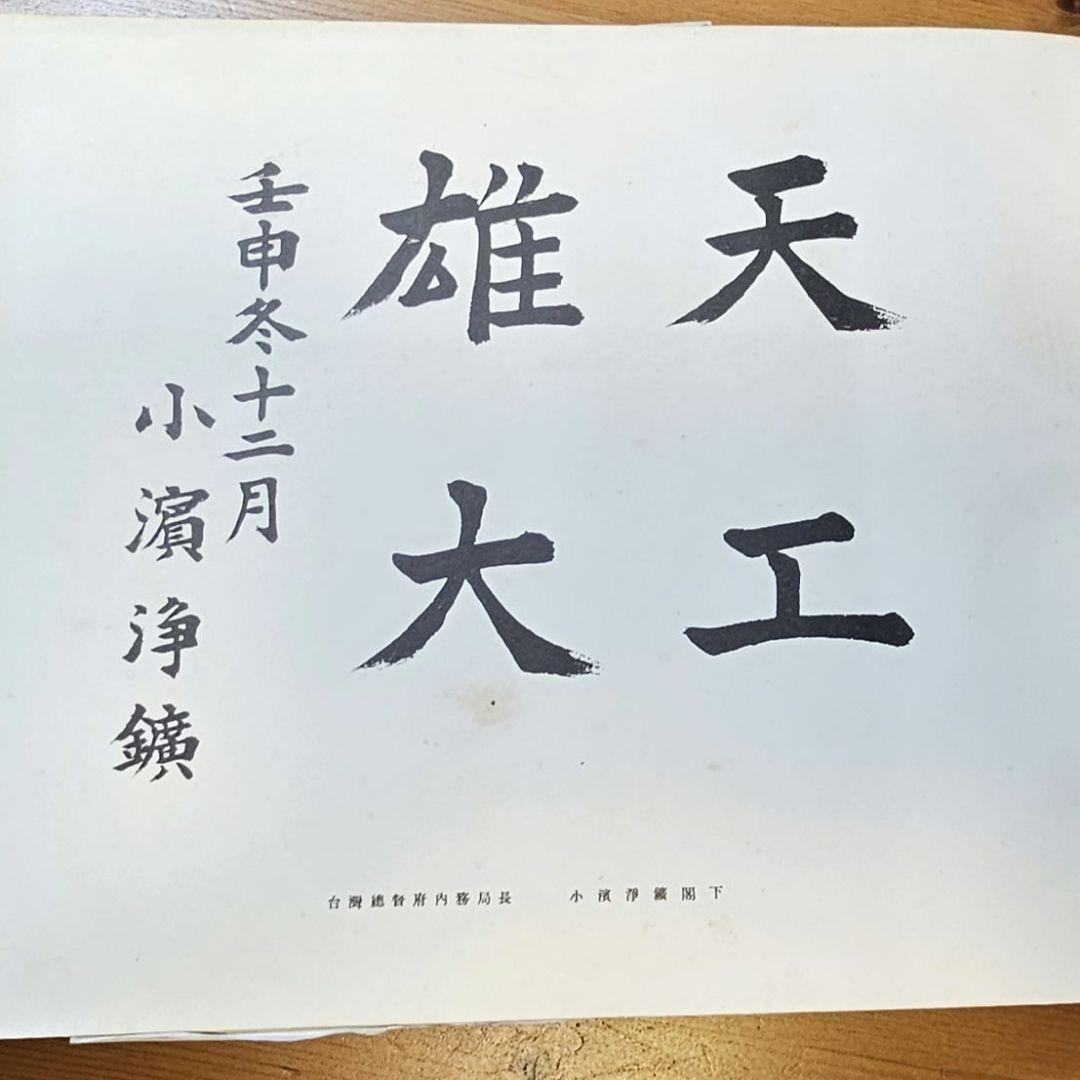 天工
雄大
壬申冬十二月
小濱浄鑛
台灣總督府內務局長　小濱淨鑛閣下